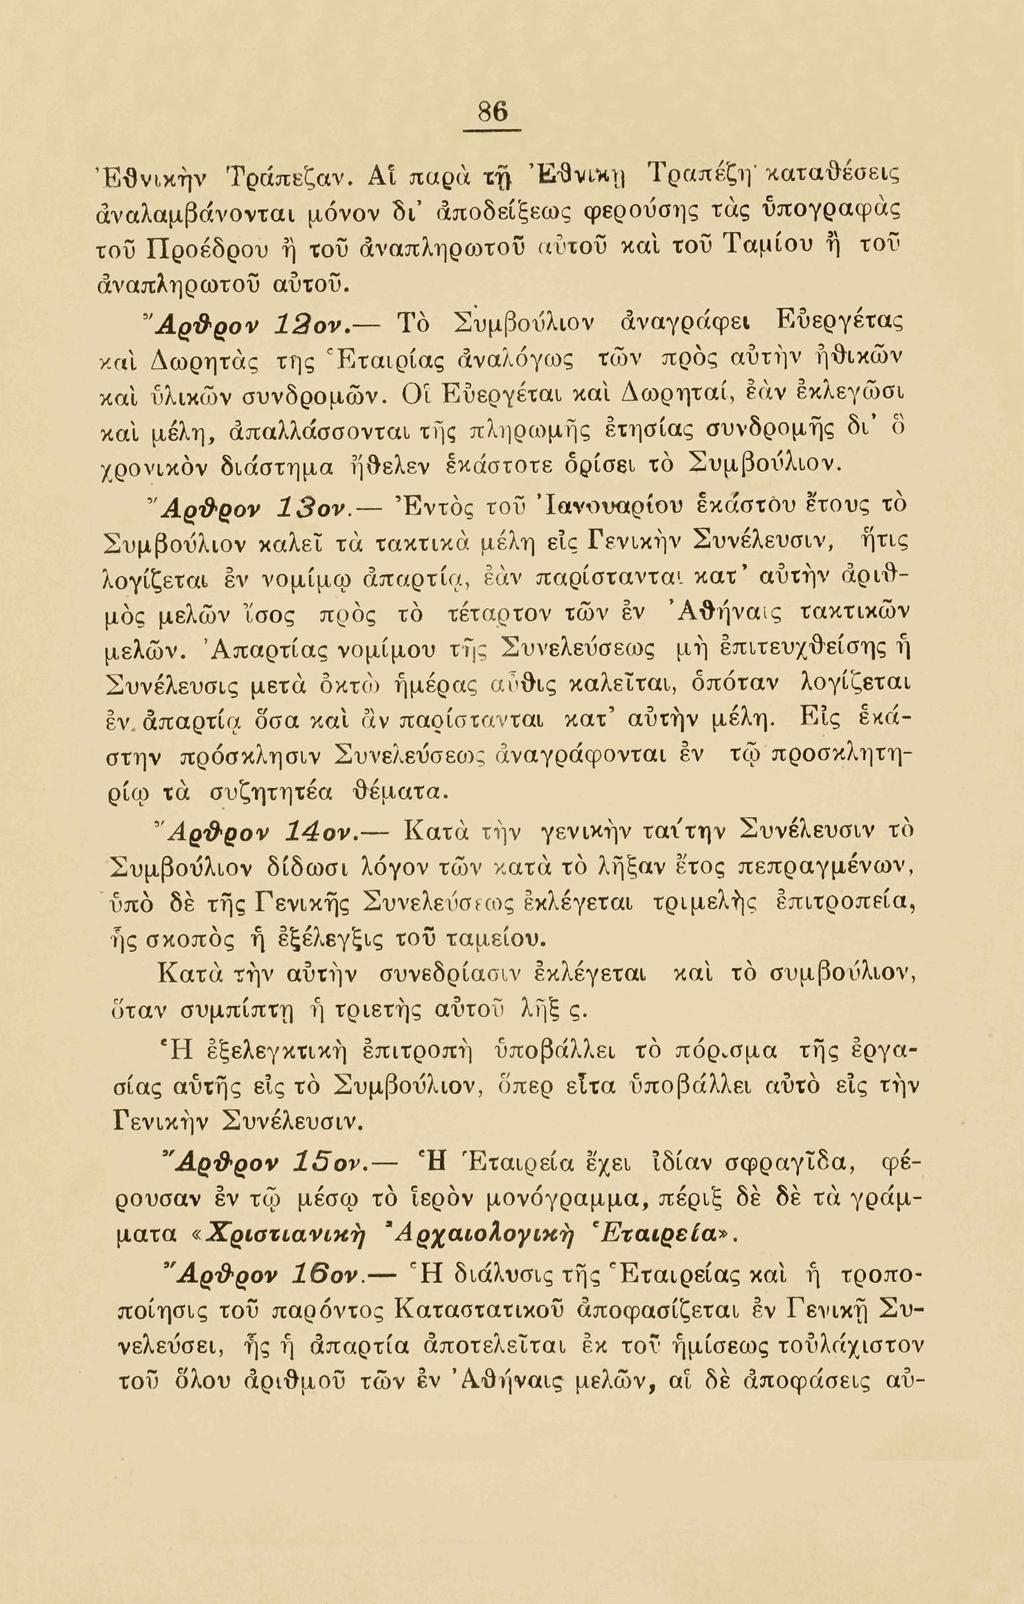 86
Ἐθνικὴν Τράπεζαν. Αἱ παρὰ τῇ Ἐθνικῇ Τραπέζῃ καταθέσεις
ἀναλαμβάνονται μόνον δι᾽ ἀποδείξεως φερούσης τὰς ὑπογραφὰς
τοῦ Προέδρου ἢ τοῦ ἀναπληρωτοῦ αὐτοῦ καὶ τοῦ Ταμίου ἢ τοῦ
ἀναπληρωτοῦ αὐτοῦ.
Ἄρθρον 12ον.— Τὸ Συμβούλιον ἀναγράφει Εὐεργέτας
καὶ Δωρητὰς της Ἑταιρίας ἀναλόγως τῶν πρὸς αὐτὴν ἠθικῶν
καὶ ὑλικῶν συνδρομῶν. Οἱ Εὐεργέται καὶ Δωρηταί, ἐὰν ἐκλεγῶσι
καὶ μέλη, ἀπαλλάσσονται τῆς πληρωμῆς ἐτησίας συνδρομῆς δι᾽ ὃ
χρονικὸν διάστημα ἤθελεν ἑκάστοτε ὁρίσει τὸ Συμβούλιον.
Ἄρθρον 13ον.— Ἐντὸς τοῦ Ἰανουαρίου ἑκάστου ἔτους τὸ
Συμβούλιον καλεῖ τὰ τακτικὰ μέλη εἰς Γενικὴν Συνέλευσιν, ἥτις
λογίζεται ἐν νομίμῳ ἀπαρτίᾳ, ἐὰν παρίστανται κατ᾽ αὐτὴν ἀριθ-
μὸς μελῶν ἴσος πρὸς τὸ τέταρτον τῶν ἐν Ἀθήναις τακτικῶν
μελῶν. Ἀπαρτίας νομίμου τῆς Συνελεύσεως μὴ ἐπιτευχθείσης ἡ
Συνέλευσις μετὰ ὀκτὼ ἡμέρας αὖθις καλεῖται, ὁπόταν λογίζεται
ἐν ἀπαρτίᾳ ὅσα καὶ ἂν παρίστανται κατ᾽ αὐτὴν μέλη. Εἰς ἑκά-
στην πρόσκλησιν Συνελεύσεως ἀναγράφονται ἐν τῷ προσκλητη-
ρίῳ τὰ συζητητέα θέματα.
Ἄρθρον 14ον.— Κατὰ τὴν γενικὴν ταύτην Συνέλευσιν τὸ
Συμβούλιον δίδωσι λόγον τῶν κατὰ τὸ λῆξαν ἔτος πεπραγμένων,
ὑπὸ δὲ τῆς Γενικῆς Συνελεύσεως ἐκλέγεται τριμελὴς ἐπιτροπεία,
ἧς σκοπὸς ἡ ἐξέλεγξις τοῦ ταμείου.
Κατὰ τὴν αὐτὴν συνεδρίασιν ἐκλέγεται καὶ τὸ συμβούλιον,
ὅταν συμπίπτῃ ἡ τριετὴς αὐτοῦ λῆξ ς.
Ἡ ἐξελεγκτικὴ ἐπιτροπὴ ὑποβάλλει τὸ πόρισμα τῆς ἐργα-
σίας αὑτῆς εἰς τὸ Συμβούλιον, ὅπερ εἶτα ὑποβάλλει αὐτὸ εἰς τὴν
Γενικὴν Συνέλευσιν.
Ἄρθρον 15ον.— Ἡ Ἑταιρεία ἔχει ἰδίαν σφραγῖδα, φέ-
ρουσαν ἐν τῷ μέσῳ τὸ ἱερὸν μονόγραμμα, πέριξ δὲ δὲ τὰ γράμ-
ματα «Χριστιανικὴ Ἀρχαιολογικὴ Ἑταιρεία».
Ἄρθρον 16ον.— Ἡ διάλυσις τῆς Ἑταιρείας καὶ ἡ τροπο-
ποίησις τοῦ παρόντος Καταστατικοῦ ἀποφασίζεται ἐν Γενικῇ Συ-
νελεύσει, ἧς ἡ ἀπαρτία ἀποτελεῖται ἐκ τοῦ ἡμίσεως τοὐλάχιστον
τοῦ ὅλου ἀριθμοῦ τῶν ἐν Ἀθήναις μελῶν, αἱ δὲ ἀποφάσεις αὐ-